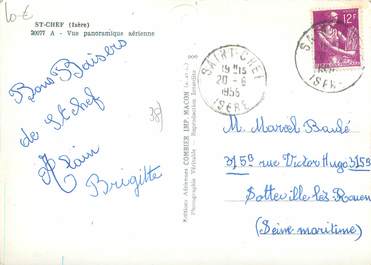 10.€
ST-CHEF (Isère)
20077 A - Vue panoramique aérienne
Bons Baisers
de St chef
Alain
Brigitte
38
Editions Aériennes COMBIER IMP. MACON
Photographie Véritable - Reproduction Interdite
SAINT-CHEF
19H15
20-6
1955
ISERE
12F
M. Marcel Baudé
315 rue Victor Hugo 315
Sotteville lès Rouen
(Seine maritime)